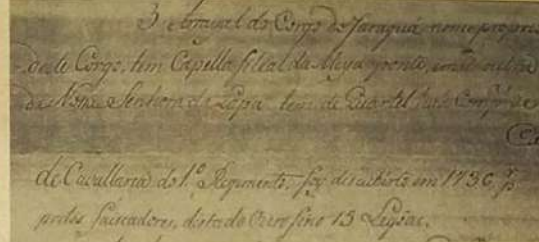 3 Arrayal do Corgo do Jaraguá nome proprio
deste Córgo, tem Capella filial da Meyaponte, e
de Nossa Senhora da Lapa tem de Quartel
de Cavallaria do 1.º Regimento, foy discuberto em 1736 p.
pretos faiscadores, dista do Ouro fino 13 Legoas.